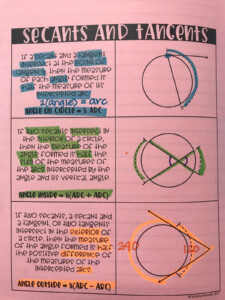 SECANTS AND TANGENTS
If a secant and a tangent
intersect at the point of
tangency, then the measure
of each angle formed is
half the measure of its
intercepted arc.
2(angle) = arc
ANGLE ON CIRCLE = ½ ARC
If two secants intersect in
the interior of a circle,
then the measure of the
angle formed is half the
sum of the measures of
the arcs intercepted by the
angle and its vertical angle.
ANGLE INSIDE = ½(ARC + ARC)
If two secants, a secant and
a tangent, or two tangents
intersect in the exterior of
a circle, then the measure
of the angle formed is half
the positive difference of
the measures of the
intercepted arcs.
240
120
ANGLE OUTSIDE = ½(ARC - ARC)